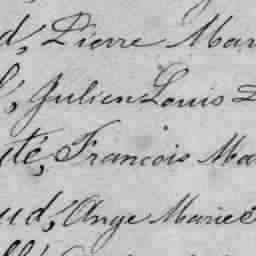 d, Pierre Mar
, Julien Louis
uté, Francois Ma
ud, Ange Marie